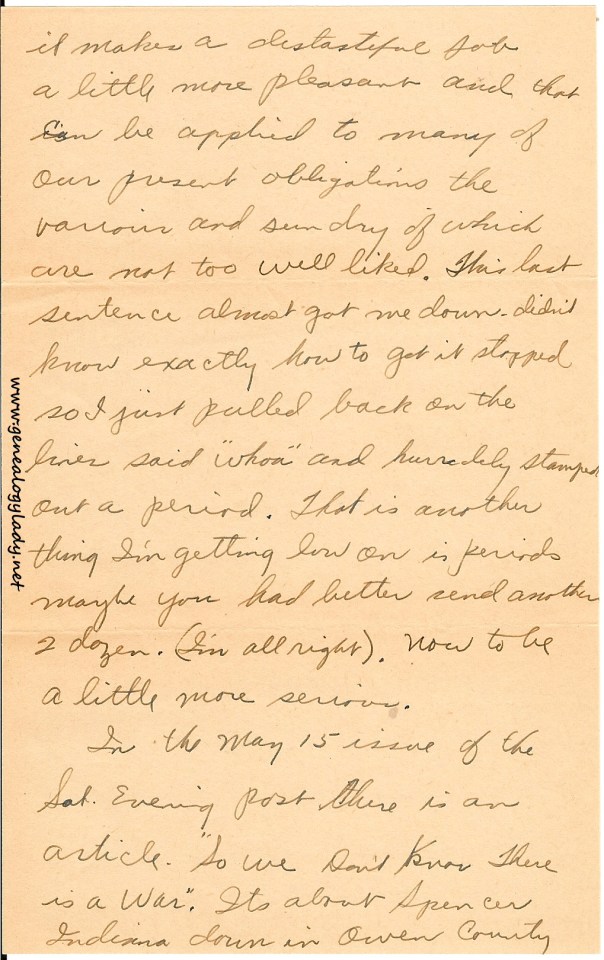 it makes a distasteful job
a little more pleasant and that
can be applied to many of
our present obligations the
various and sundry of which
are not too well liked. This last
sentence almost got me down - didn't
know exactly how to get it stopped
so I just pulled back on the
lines said "whoa" and hurredely stamped
out a period. That is another
thing I'm getting low on is periods
maybe you had better send another
2 dozen. (I'm all right). Now to be
a little more serious.
In the May 15 issue of the
Sat. Evening Post there is an
article - "So we Don't Know There
is a War". Its about Spencer
Indiana down in Owen County
www.genealogylady.net